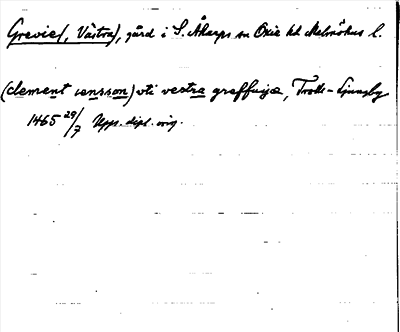 Grevie(, Västra), gård i S. Åkarps sn Oxie hd Malmöhus l.
(clement iensson) vti vestra greffuiæ, Trolle-Ljungby
1465 29/7 Upps. dipl. orig.